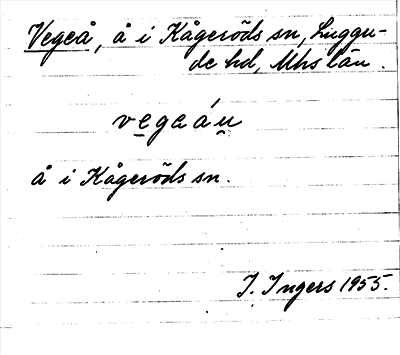 Vegeå, å i Kågeröds sn, Luggu-
de hd, Mhs län.
vegaáu
å i Kågeröds sn.
I. Ingers 1955.